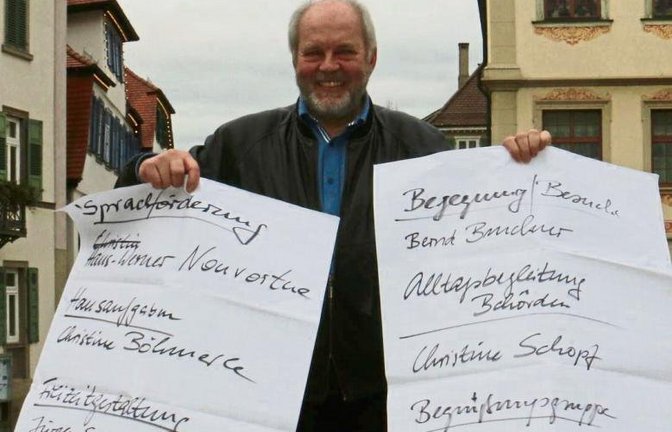 -Sprachförderung
Christin
Hans-Werner Nonvortne
Hausaufgaben
Christine Böhmerle
Freizeitgestaltung
Begegnung / Besuch
Bernd Bruckner
Alltagsbegleitung
Behörden
Christine Schopf
Begrüßungsgruppe